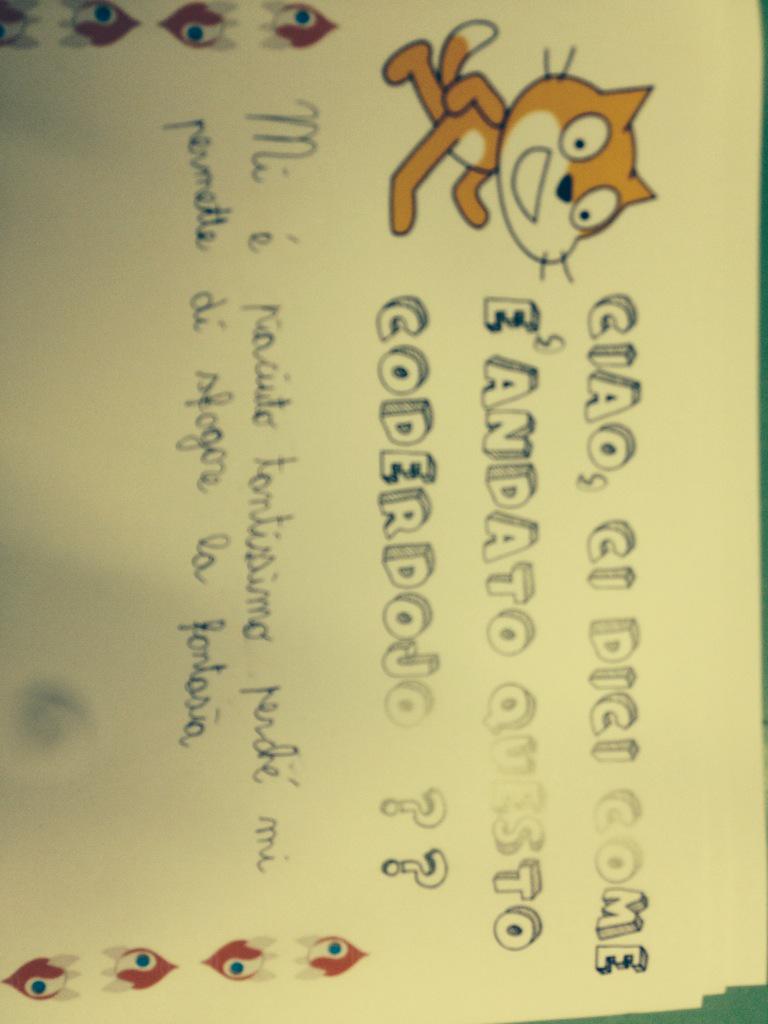 CIAO, CI DICI COME
E' ANDATO QUESTO
CODERDOJO ??
Mi è piaciuto tantissimo perché mi
permette di sfogare la fantasia